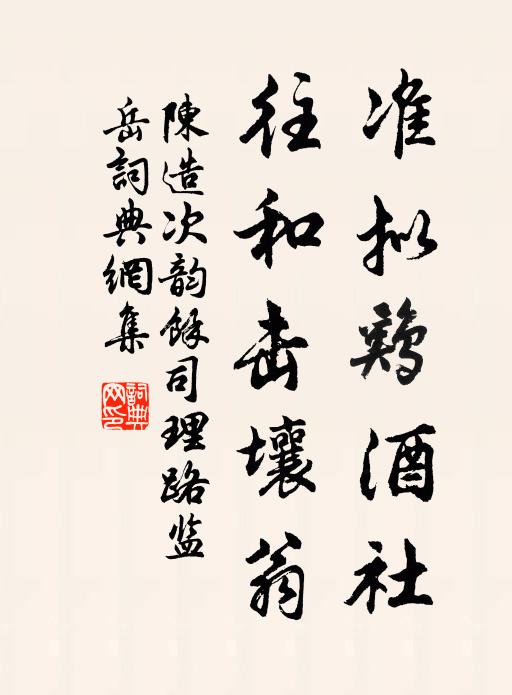 准拟鷄酒社
往和击壤翁
陳造次韵餘司理路监
岳詞典網集
詞典網印